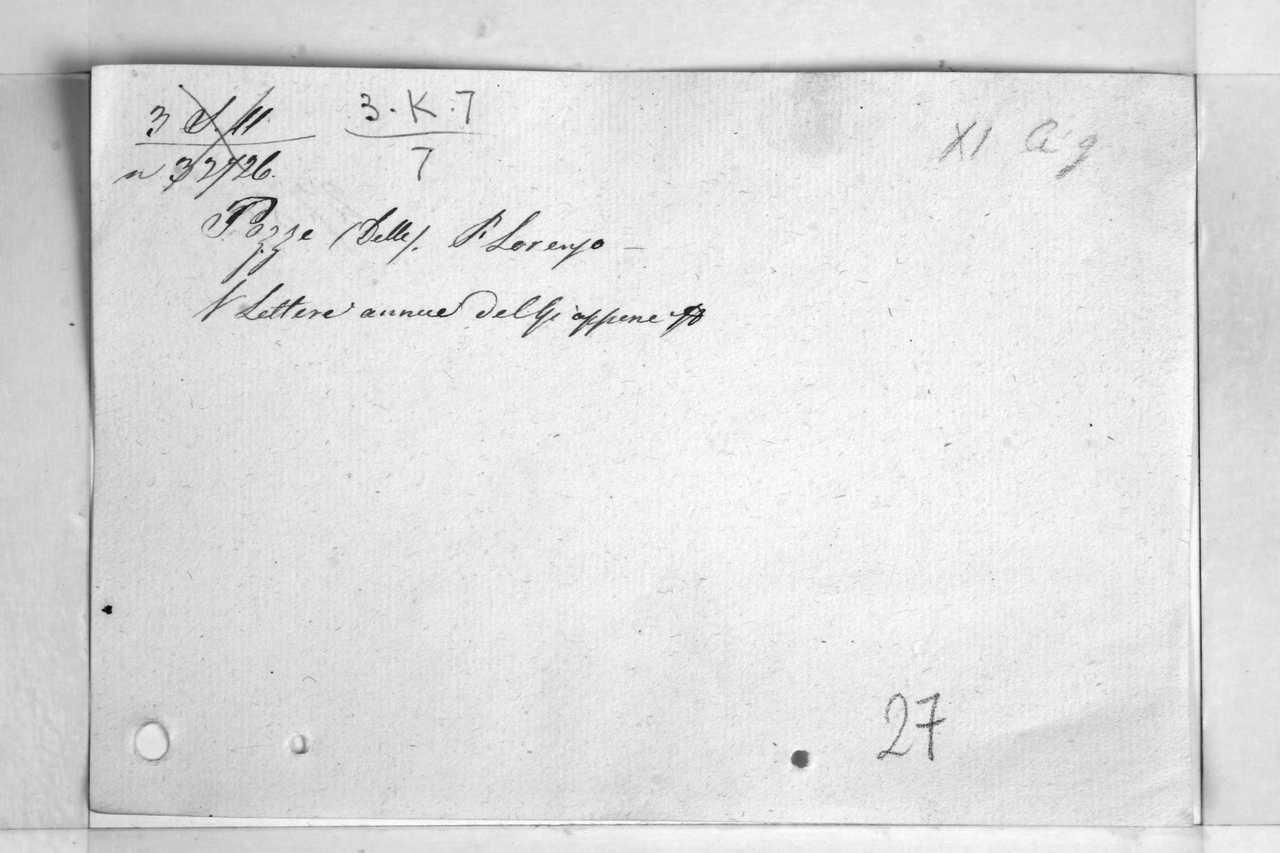 3 11 3·K·7
n 32726. 7
XI C g
Pozze (Delle). P. Lorenzo –
Lettere annue del Giappone
27